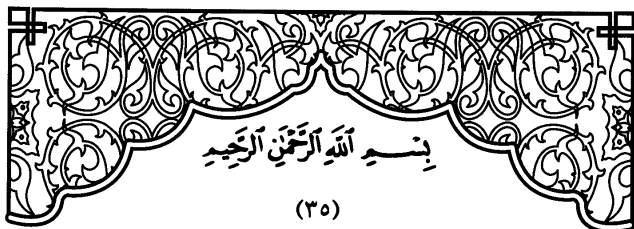 بِسْمِ ٱللَّهِ ٱلرَّحْمَٰنِ ٱلرَّحِيمِ
(٣٥)